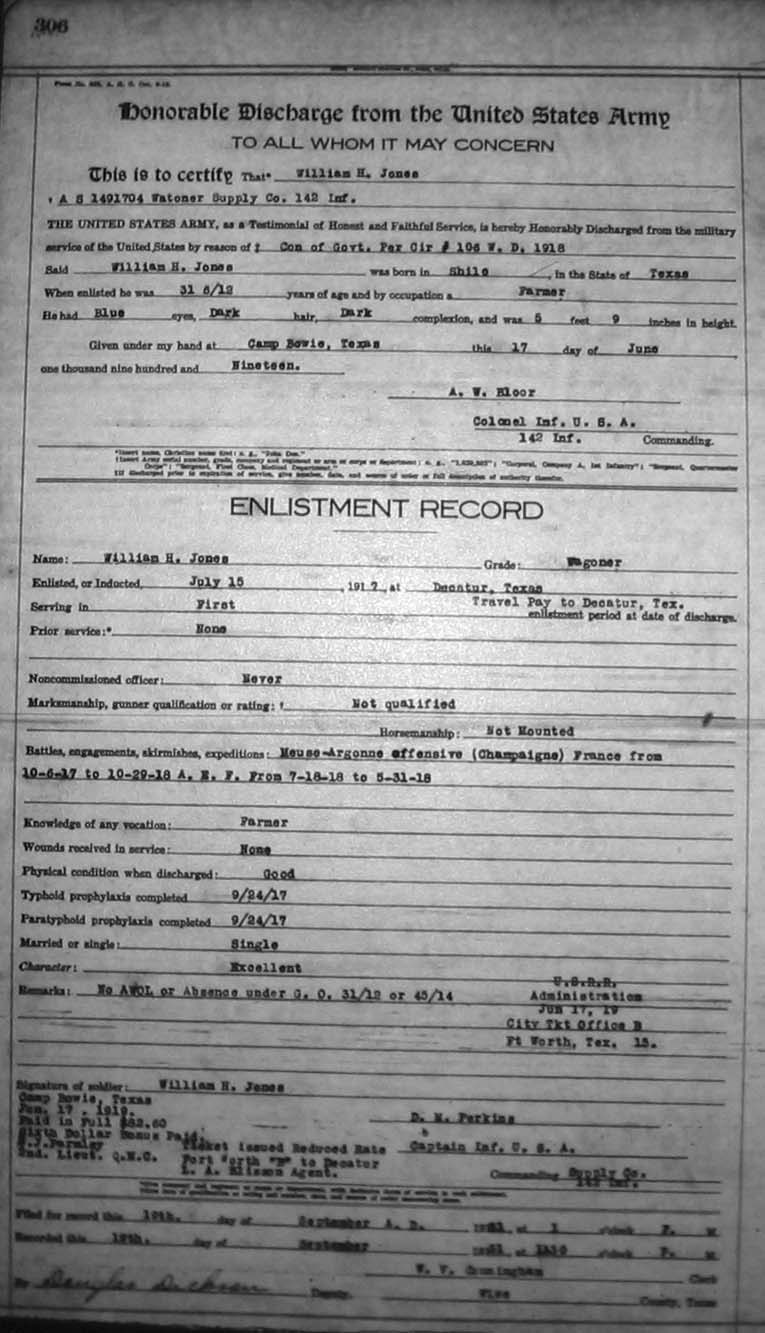 306
Honorable Discharge from the United States Army
TO ALL WHOM IT MAY CONCERN
This is to certify That* William H. Jones
† A S 1491704 Watoner Supply Co. 142 Inf.
THE UNITED STATES ARMY, as a Testimonial of Honest and Faithful Service, is hereby Honorably Discharged from the military
service of the United States by reason of ‡ Con of Govt. Per Cir # 106 W. D. 1918
Said William H. Jones was born in Shilo, in the State of Texas
When enlisted he was 31 6/12 years of age and by occupation a Farmer
He had Blue eyes, Dark hair, Dark complexion, and was 5 feet 9 inches in height.
Given under my hand at Camp Bowie, Texas this 17 day of June,
one thousand nine hundred and Nineteen.
A. W. Bloor
Colonel Inf. U. S. A.
142 Inf. Commanding.
*Insert name, Christian name first; e. g., "John Doe."
†Insert Army serial number, grade, company and regiment or arm or corps or department; e. g., "1,620,302"; "Corporal, Company A, 1st Infantry"; "Sergeant, Quartermaster
Corps"; "Sergeant, First Class, Medical Department."
‡If discharged prior to expiration of service, give number, date, and source of order or full description of authority therefor.
ENLISTMENT RECORD
Name: William H. Jones Grade: Wagoner
Enlisted, or Inducted, July 15, 1917, at Decatur, Texas
Serving in First Travel Pay to Decatur, Tex.
enlistment period at date of discharge.
Prior service:* None
Noncommissioned officer: Never
Marksmanship, gunner qualification or rating: † Not qualified
Horsemanship: Not Mounted
Battles, engagements, skirmishes, expeditions: Meuse-Argonne offensive (Champaigne) France from
10-6-17 to 10-29-18 A. E. F. From 7-18-18 to 5-31-18
Knowledge of any vocation: Farmer
Wounds received in service: None
Physical condition when discharged: Good
Typhoid prophylaxis completed 9/24/17
Paratyphoid prophylaxis completed 9/24/17
Married or single: Single
Character: Excellent
U.S.R.R.
Remarks: No AWOL or Absence under G. O. 31/12 or 45/14 Administration
Jun 17, 19
City Tkt Office B
Ft Worth, Tex. 15.
Signature of soldier: William H. Jones
Camp Bowie, Texas
Jun. 17, 1919.
Paid in Full $82.60 D. M. Perkins
Sixth Dollar Bonus Paid.
Ticket Issued Reduced Rate Captain Inf. U. S. A.
2nd. Lieut. Q.M.C. Fort Worth "B" to Decatur
L. A. Agent. Commanding Supply Co.
142 Inf.
Filed for record this 19th. day of September A. D. at 1 o'clock P. M
Recorded this 19th. day of September at o'clock P. M
W. V. Cunningham Clerk
By Douglas Deputy. Wise County, Texas